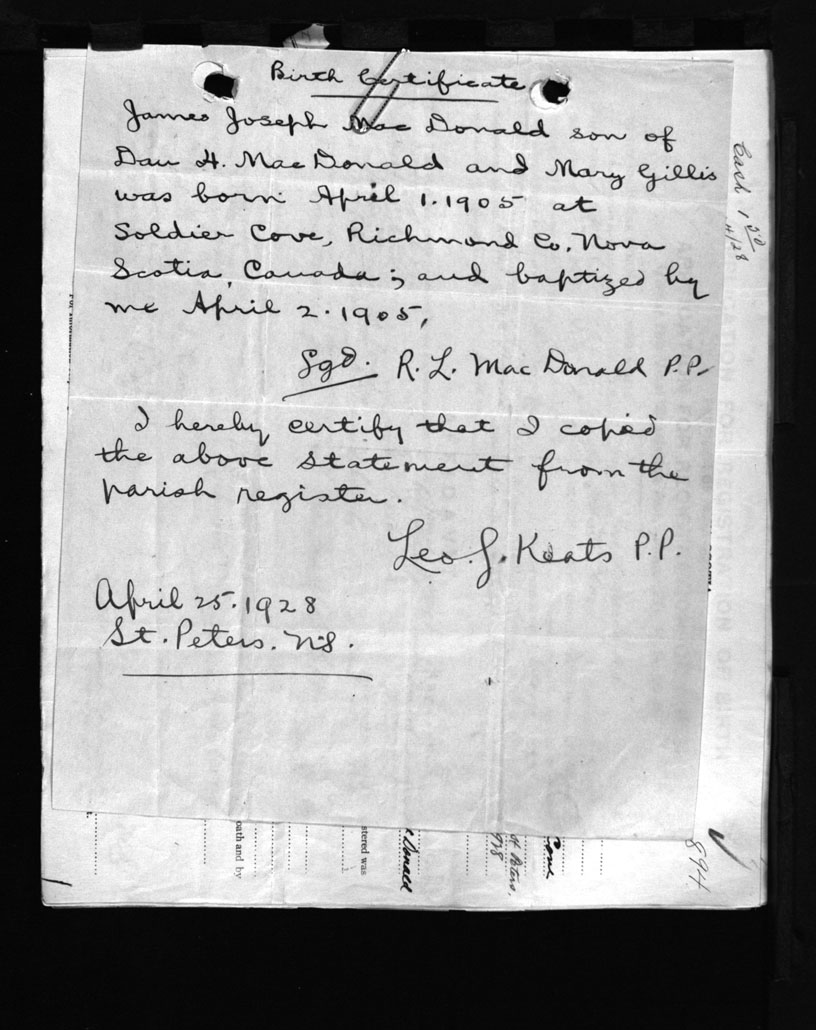 Birth Certificate
James Joseph Mac Donald son of
Dan H. Mac Donald and Mary Gillis
was born April 1. 1905 at
Soldier Cove, Richmond Co. Nova
Scotia, Canada; and baptized by
me April 2. 1905,
Sgd. R. L. Mac Donald P.P.
I hereby certify that I copied
the above statement from the
parish register.
Leo. J. Keats P.P.
April 25. 1928
St. Peters. N.S.
Cash 1 50
4/28
894
Cove
St Peters,
Donald
stered was
oath and by